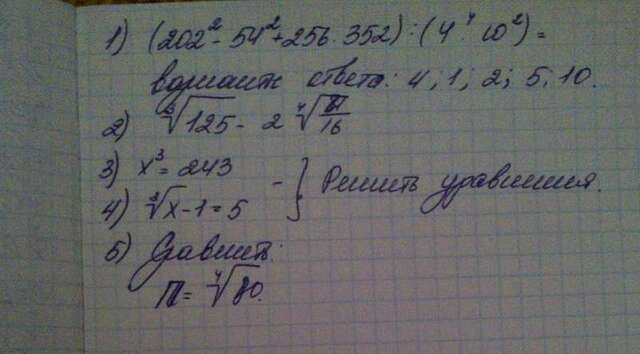 1) (202² - 54² + 256 · 352) : (4⁴ · 10²) =
вариант ответа: 4; 1; 2; 5; 10.
2) ∛125 - 2 ⁴√81/16
3) x³ = 243
4) ∛x - 1 = 5 } Решить уравнения.
5) Сравнить:
П = ⁴√80.